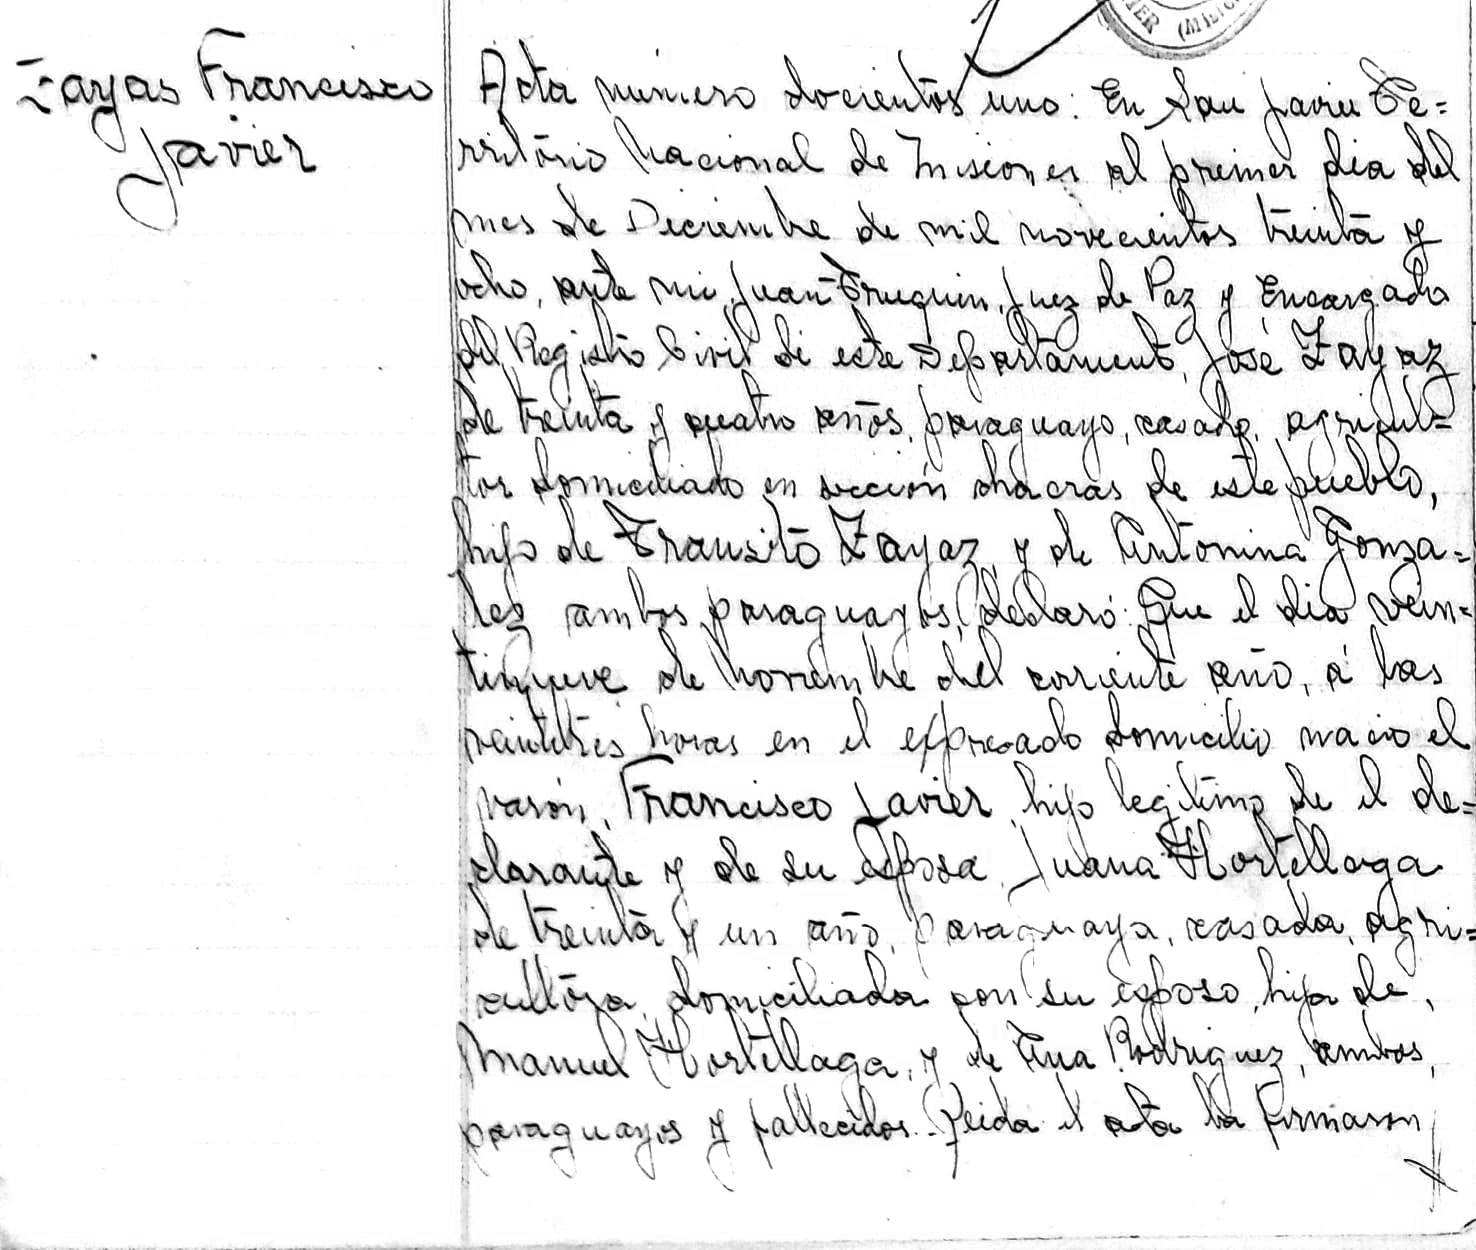 Zayas Francisco
Javier
IER (MISIO
Acta número docientos uno: En San Javier Te=
rritório Nacional de Misiones al primer dia del
mes de Diciembre de mil novecientos treinta y
ocho, ante mi, Juan Truquin, Juez de Paz y Encargado
del Registro Civil de este Departamento, José Zayaz
de treinta y quatro años, paraguayo, casado, agricul=
tor domiciliado en sección chacras de este pueblo,
hijo de Transito Zayaz, y de Antonina Gonza=
lez ambos paraguayos, declaró: Que el dia vein=
tinueve de Noviembre del corriente año, á las
veintitrés horas en el expresado domicilio nacio el
varón, Francisco Javier, hijo legítimo de el de=
clarante y de su esposa, Juana Hortellaga
de treinta y un año, paraguaya, casada, agri=
cultora, domiciliada con su esposo, hija de,
Manuel Hortellaga, y de Ana Rodriguez, ambos,
paraguayos y fallecidos. Leida el acta la firmaron